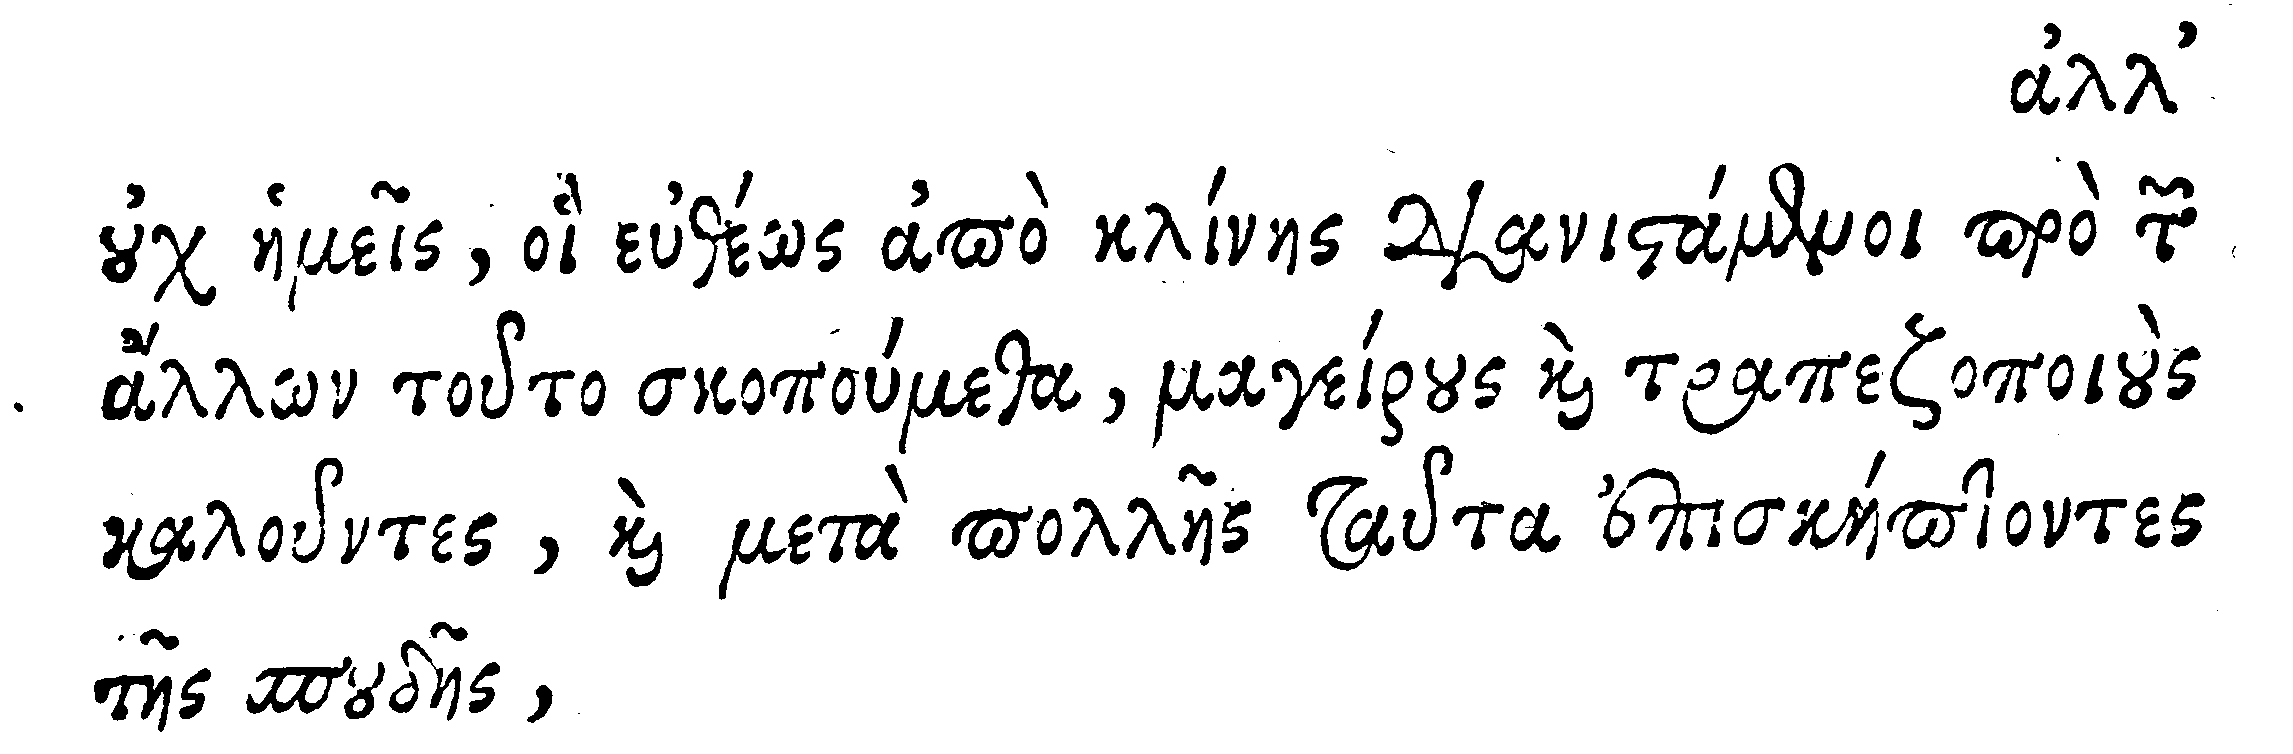 ἀλλ’
οὐχ ἡμεῖς, οἳ εὐθέως ἀπὸ κλίνης διανιστάμενοι πρὸ τῶν
ἄλλων τοῦτο σκοπούμεθα, μαγείρους καὶ τραπεζοποιοὺς
καλοῦντες, καὶ μετὰ πολλῆς ταῦτα ἐπισκήπτοντες
τῆς σπουδῆς,